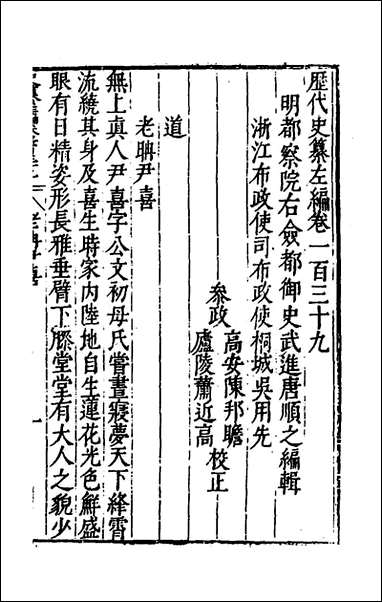 歷代史纂左編卷一百三十九
明都察院右僉都御史武進唐順之編輯
浙江布政使司布政使桐城吳用先
叅政
高安陳邦瞻
廬陵蕭近高
校正
道
老聃尹喜
無上真人尹喜字公文初母氏嘗晝寢夢天下絳霄
流繞其身及喜生時家內陸地自生蓮花光色鮮盛
眼有日精姿形長雅垂臂下膝堂堂有大人之貌少